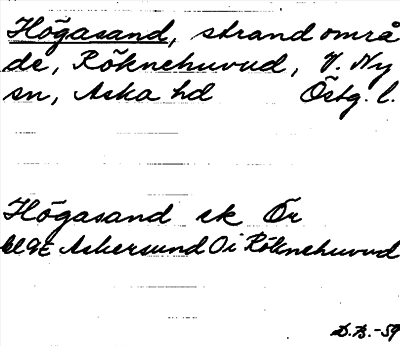 Högasand, strandområ
de, Röknehuvud, V. Ny
sn, Aska hd Östg. l.
Högasand ek Ör
bl 9E Askersund Oi Röknehuvud
D.B.-59